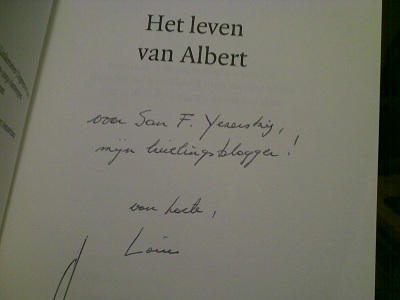 Het leven
van Albert
voor San F. Yezerskiy,
mijn lievelingsblogger!
van harte,